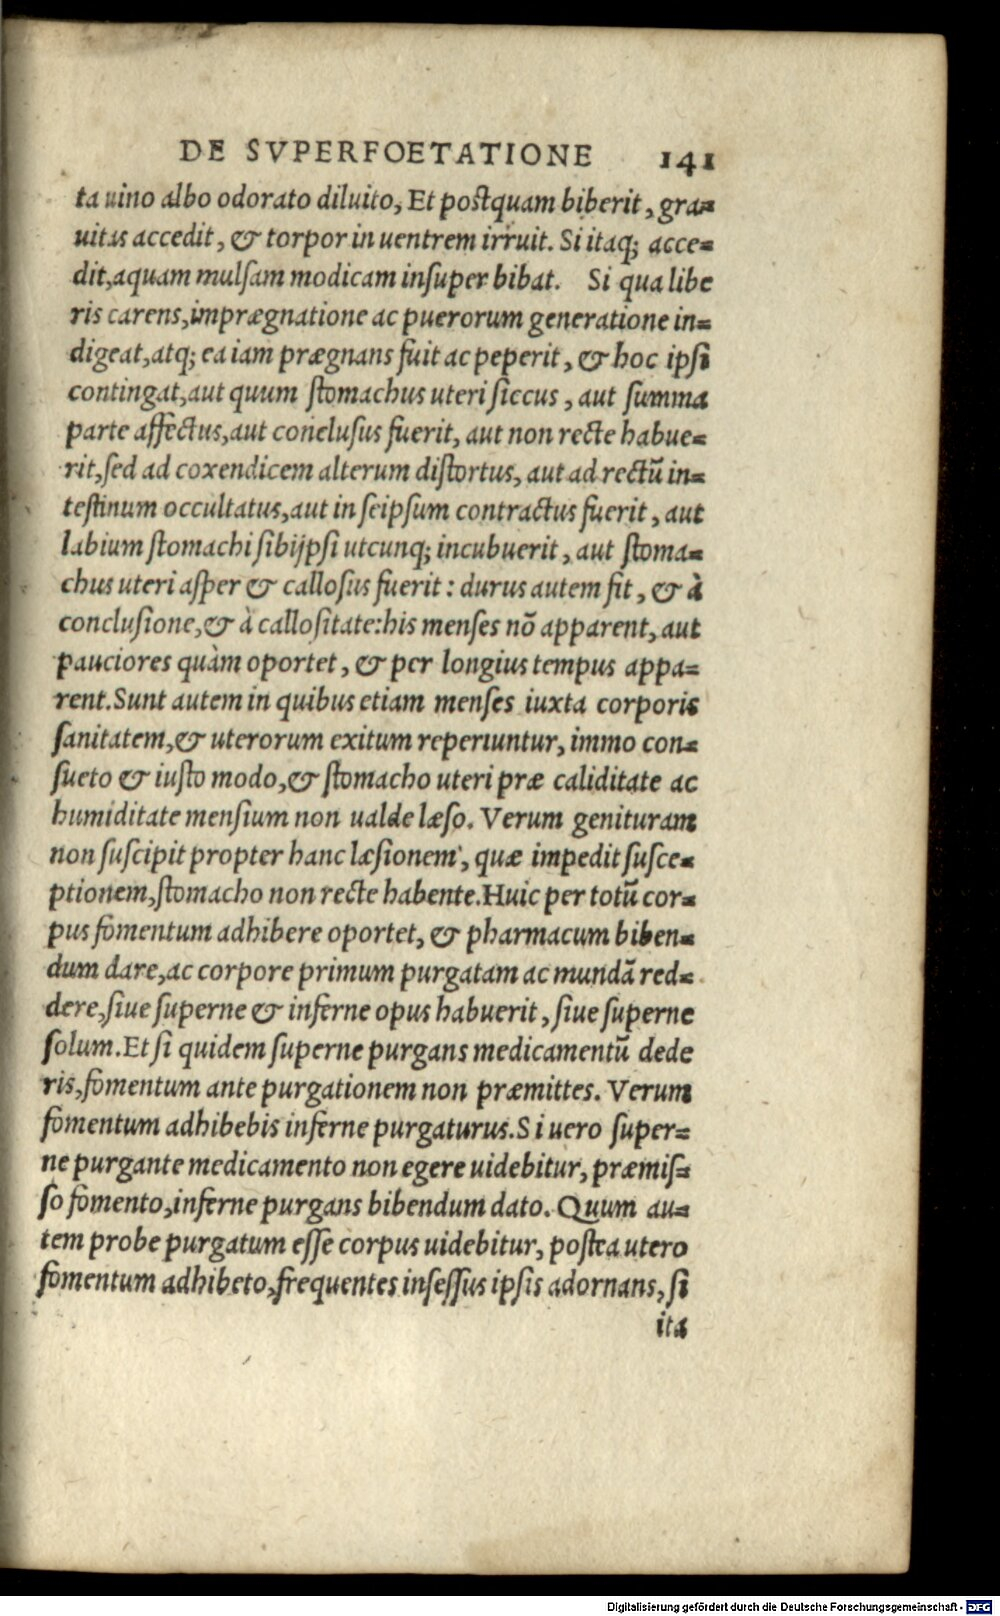 DE SVPERFOETATIONE 141
ta uino albo odorato diluito, Et postquam biberit, gra=
uitas accedit, & torpor in uentrem irruit. Si itaq; acce=
dit, aquam mulsam modicam insuper bibat. Si qua libe
ris carens, imprægnatione ac puerorum generatione in=
digeat, atq; ea iam prægnans fuit ac peperit, & hoc ipsi
contingat, aut quum stomachus uteri siccus, aut summa
parte affectus, aut conclusus fuerit, aut non recte habue=
rit, sed ad coxendicem alterum distortus, aut ad rectū in=
testinum occultatus, aut in seipsum contractus fuerit, aut
labium stomachi sibijpsi utcunq; incubuerit, aut stoma=
chus uteri asper & callosus fuerit: durus autem fit, & à
conclusione, & à callositate: his menses nō apparent, aut
pauciores quàm oportet, & per longius tempus appa=
rent. Sunt autem in quibus etiam menses iuxta corporis
sanitatem, & uterorum exitum reperiuntur, immo con=
sueto & iusto modo, & stomacho uteri præ caliditate ac
humiditate mensium non ualde læso. Verum genituram
non suscipit propter hanc læsionem, quæ impedit susce=
ptionem, stomacho non recte habente. Huic per totū cor=
pus fomentum adhibere oportet, & pharmacum biben=
dum dare, ac corpore primum purgatam ac mundā red=
dere, siue superne & inferne opus habuerit, siue superne
solum. Et si quidem superne purgans medicamentū dede
ris, fomentum ante purgationem non præmittes. Verum
fomentum adhibebis inferne purgaturus. Si uero super=
ne purgante medicamento non egere uidebitur, præmis=
so fomento, inferne purgans bibendum dato. Quum au=
tem probe purgatum esse corpus uidebitur, postea utero
fomentum adhibeto, frequentes insessus ipsis adornans, si
ita
Digitalisierung gefördert durch die Deutsche Forschungsgemeinschaft - DFG